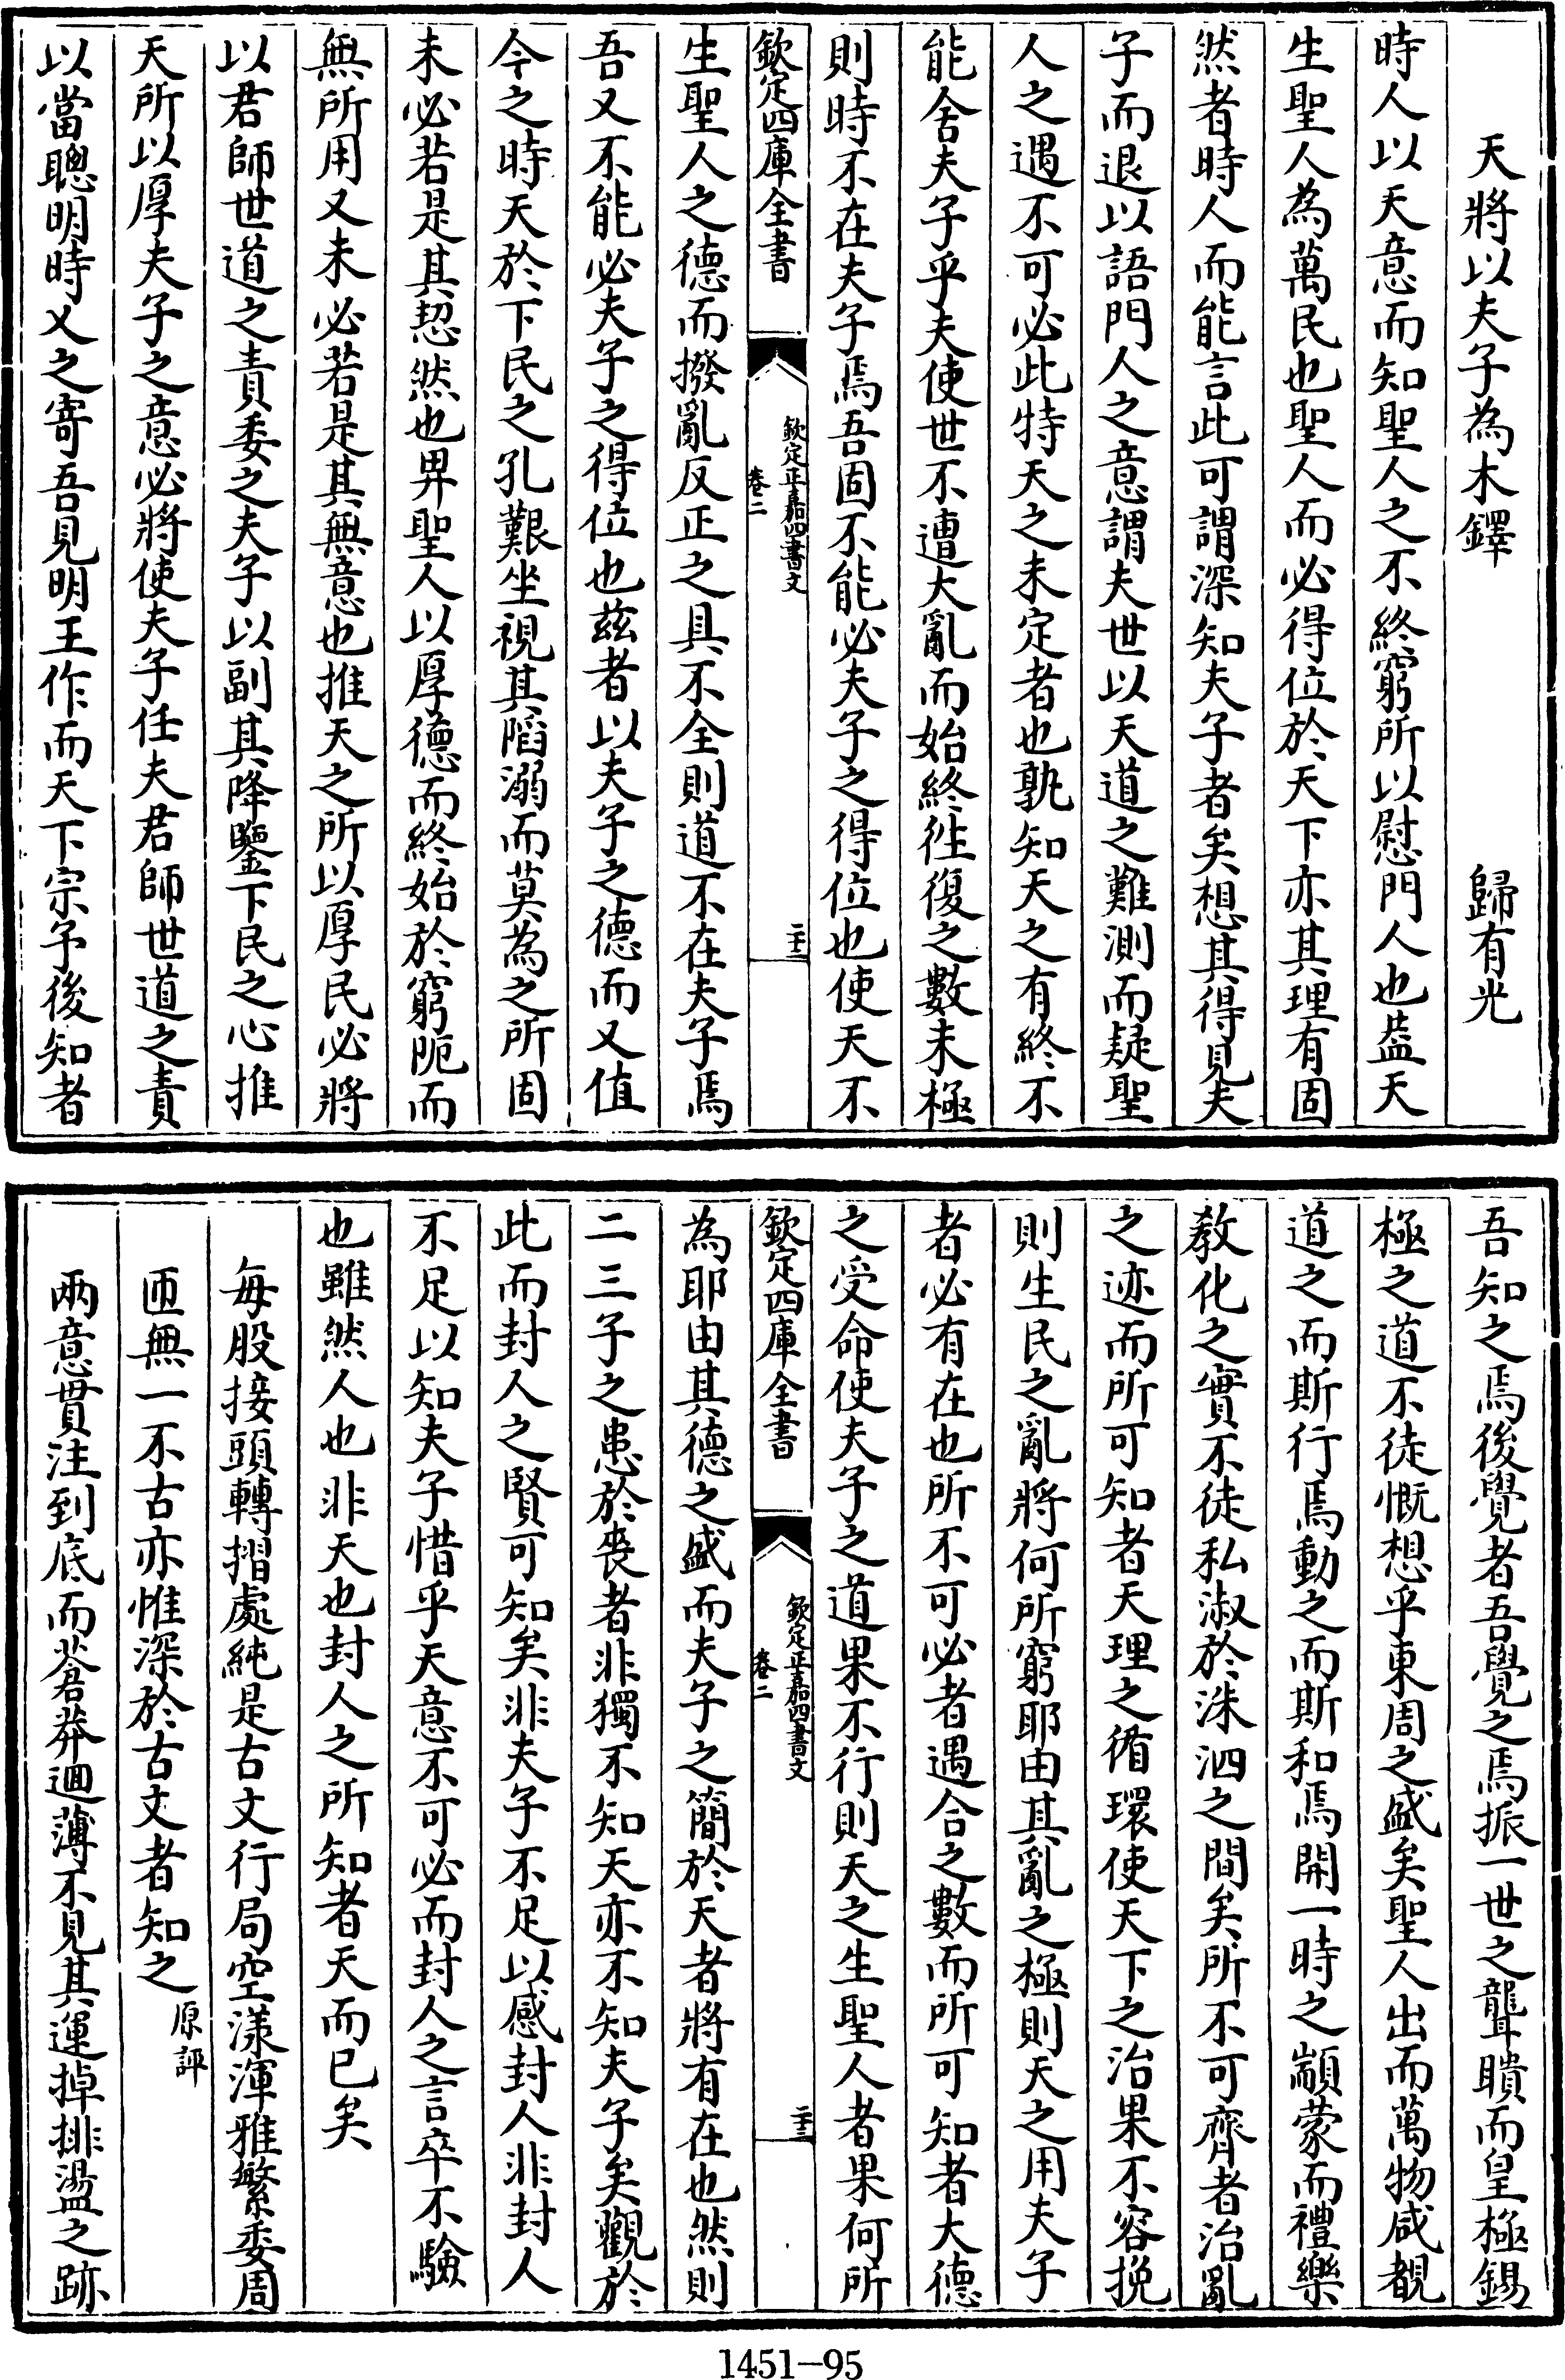 天將以夫子為木鐸　歸有光
時人以天意而知聖人之不終窮所以慰門人也葢天
生聖人為萬民也聖人而必得位於天下亦其理有固
然者時人而能言此可謂深知夫子者矣想其得見夫
子而退以語門人之意謂夫世以天道之難測而疑聖
人之遇不可必此特天之未定者也孰知天之有終不
能舍夫子乎夫使世不遭大亂而始終往復之數未極
則時不在夫子焉吾固不能必夫子之得位也使天不
欽定四庫全書
欽定正嘉四書文
卷二
二十二
生聖人之德而撥亂反正之具不全則道不在夫子焉
吾又不能必夫子之得位也兹者以夫子之德而又值
今之時天於下民之孔艱坐視其陷溺而莫為之所固
未必若是其恝然也畀聖人以厚德而終始於窮阨而
無所用又未必若是其無意也推天之所以厚民必將
以君師世道之責委之夫子以副其降鑒下民之心推
天所以厚夫子之意必將使夫子任夫君師世道之責
以當聰明時乂之寄吾見明王作而天下宗予後知者
吾知之焉後覺者吾覺之焉振一世之聾聵而皇極錫
極之道不徒慨想乎東周之盛矣聖人出而萬物咸覩
道之而斯行焉動之而斯和焉開一時之顓蒙而禮樂
教化之實不徒私淑於洙泗之間矣所不可齊者治亂
之迹而所可知者天理之循環使天下之治果不容挽
則生民之亂將何所窮耶由其亂之極則天之用夫子
者必有在也所不可必者遇合之數而所可知者大德
之受命使夫子之道果不行則天之生聖人者果何所
欽定四庫全書
欽定正嘉四書文
卷二
二十三
為耶由其德之盛而夫子之簡於天者將有在也然則
二三子之患於喪者非獨不知天亦不知夫子矣觀於
此而封人之賢可知矣非夫子不足以感封人非封人
不足以知夫子惜乎天意不可必而封人之言卒不驗
也雖然人也非天也封人之所知者天而已矣
每股接頭轉摺處純是古文行局空漾渾雅繁委周
匝無一不古亦惟深於古文者知之原評
兩意貫注到底而蒼莽迴薄不見其運掉排盪之跡
1451—95